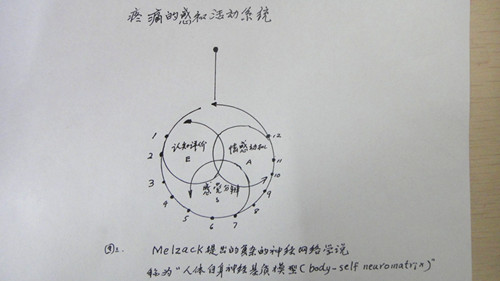 疼痛的感知活动系统
1
2
3
4
5
6
7
8
9
10
11
12
认知评价
E
情感动机
A
感觉分辨
S
图2. Melzack提出的复杂的神经网络学说
称为"人体自身神经基质模型(body-self neuromatrix)"